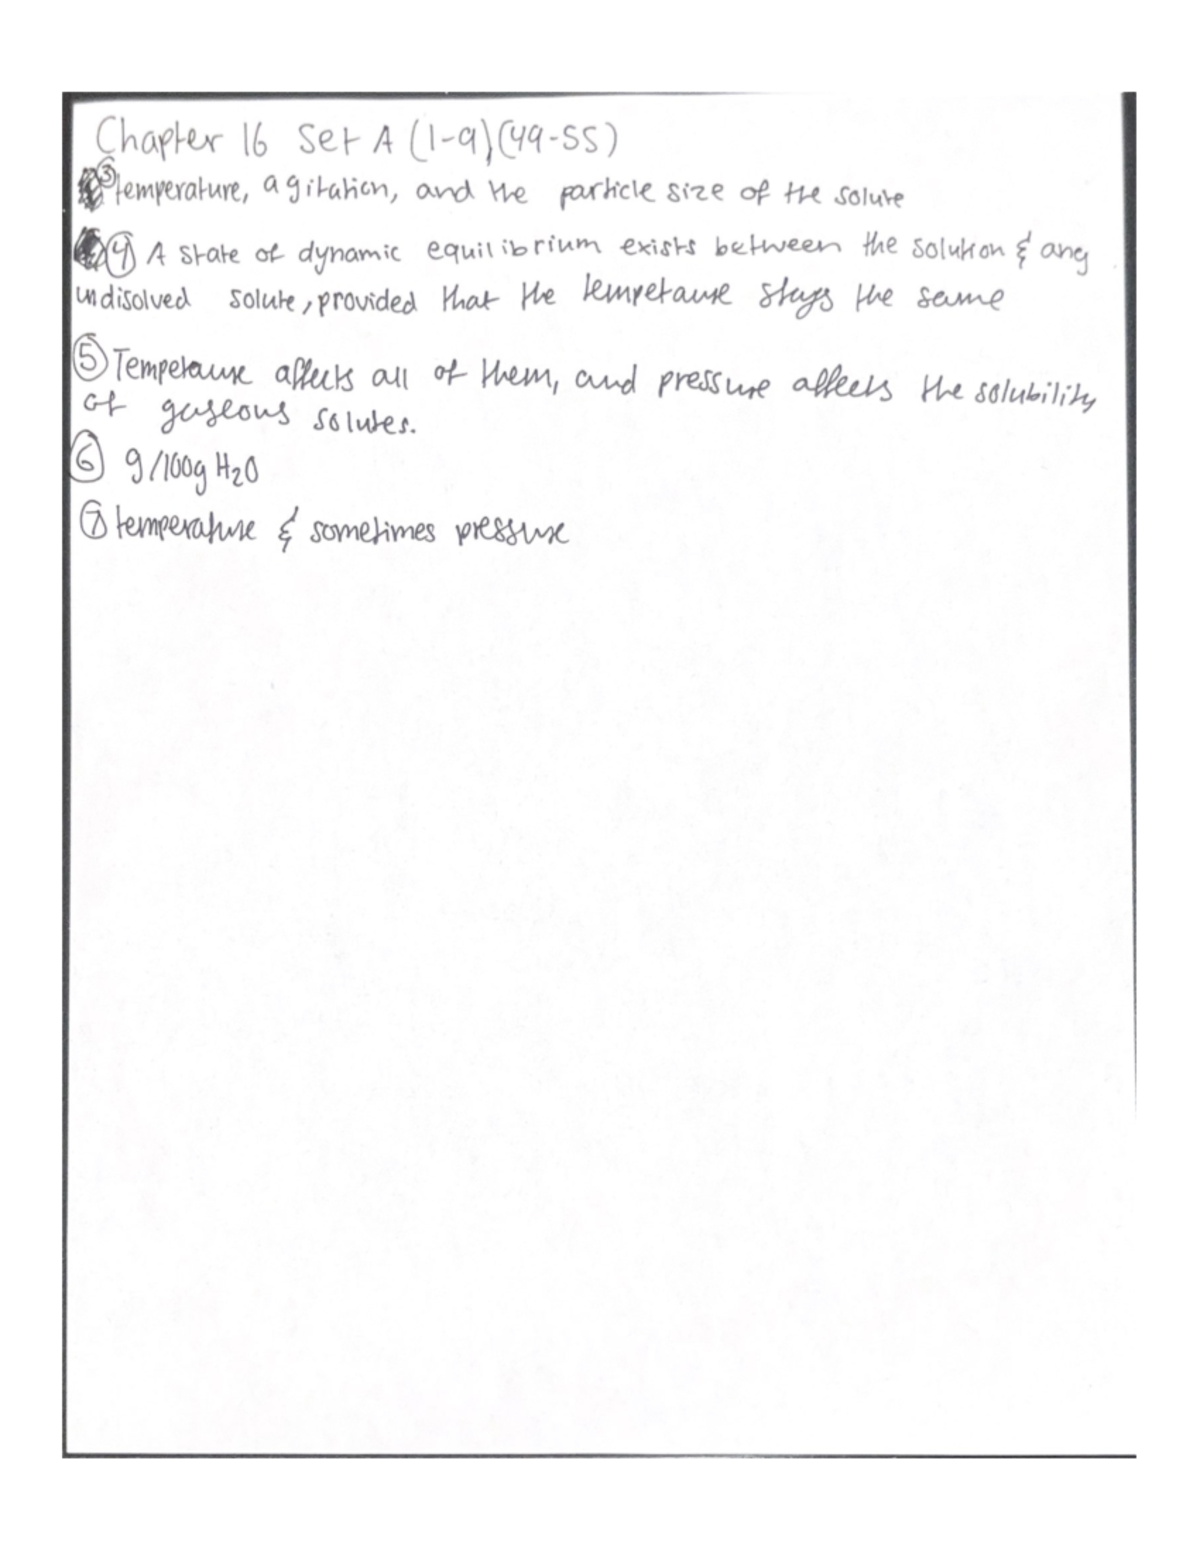 Chapter 16 Set A (1-9)(49-55)
③ temperature, agitation, and the particle size of the solute
④ A state of dynamic equilibrium exists between the solution & any
undisolved solute, provided that the tempetaure stays the same
⑤ Tempetaure affects all of them, and pressure affects the solubility
of gaseous solutes.
⑥ g/100g H₂O
⑦ temperature & sometimes pressure